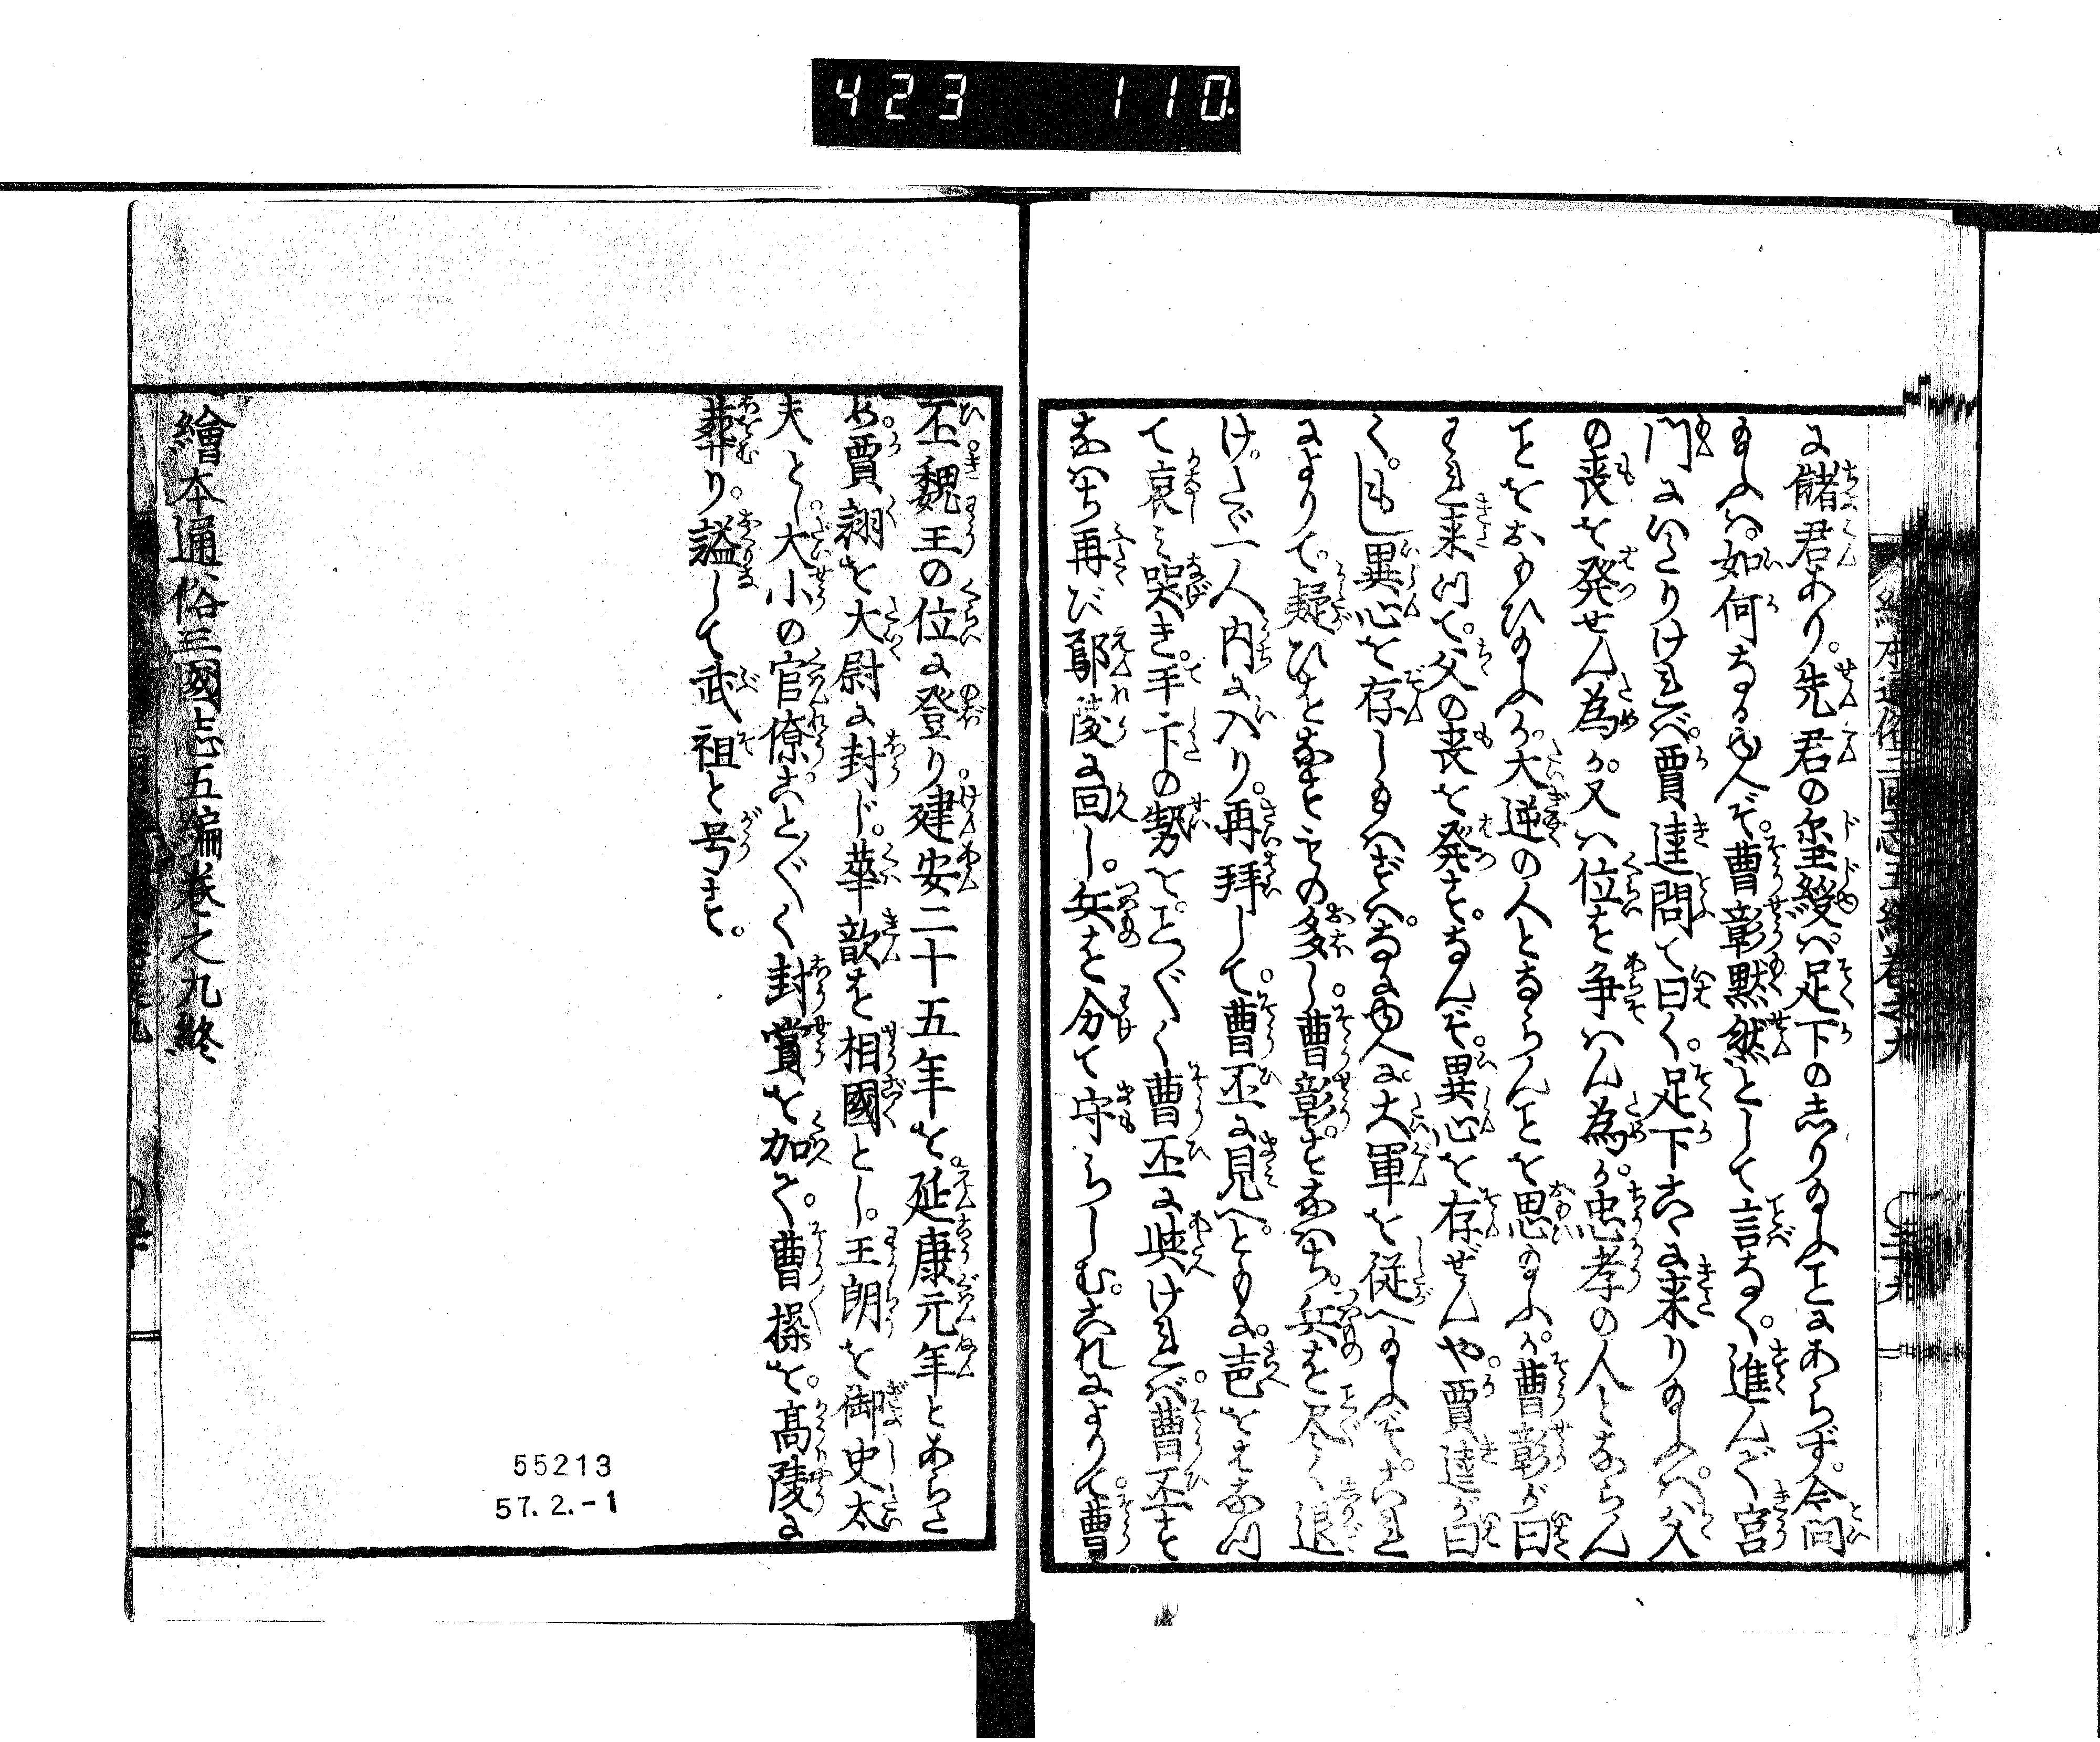 423 110
に儲君あり。先君の璽綬ハ足下のしり給ふことにあらず。今問
給ふハ。如何なる故ぞ。曹彰黙然として言なく。進んで宮
門にいたりけれバ。賈逵問て曰く。足下こゝに来り給ふハ。父
の喪を発せん為か。又ハ位を争ハん為か。忠孝の人とならん
ことをおもひ給ふか。大逆の人とならんことを思給ふか。曹彰が曰
われ来つて。父の喪を発す。なんぞ異心を存ぜんや。賈逵が曰
く。もし異心を存し給ハずハ。なに由に大軍を従へ給ふぞ。これ
によりて。疑ひをなすもの多し。曹彰すなハち。兵を尽く退
け。たゞ一人内に入り。再拝して。曹丕に見へ。ともに。声をはなつ
て哀ミ哭き。手下の勢を。こと〴〵く曹丕に與けれバ。曹丕す
なハち再び鄢陵に回し。兵を分て守らしむ。これによりて曹
丕魏王の位に登り。建安二十五年を。延康元年とあらた
め。賈詡を大尉に封じ。華歆を相國とし。王朗を御史太
夫とし。大小の官僚。こと〴〵く封賞を加て。曹操を。高陵に
葬り。謚して武祖と号す。
繪本通俗三國志五編巻之九終
55213
57.2.-1